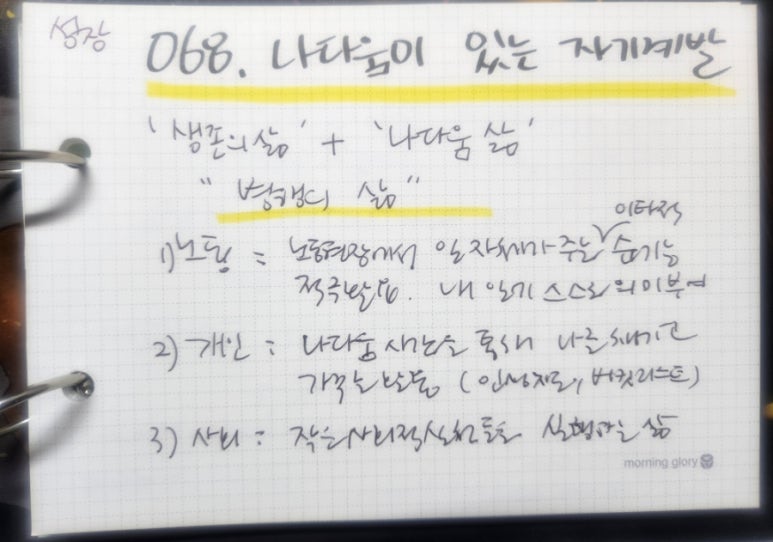 성장
068. 나다움이 있는 자기계발
'생존의 삶' + '나다움 삶'
"병행의 삶"
이타적
1) 노동 = 노동현장에서 일 자체가 주는 ∨ 순기능
적극발휘. 내 일기 스스로 의미부여
2) 개인 = 나다움 새노을 통해 나를 채기고
가꾸는 활동 (인생지도, 버킷리스트)
3) 사회 = 작은 사회적 실천들을 실행하는 삶
morning glory